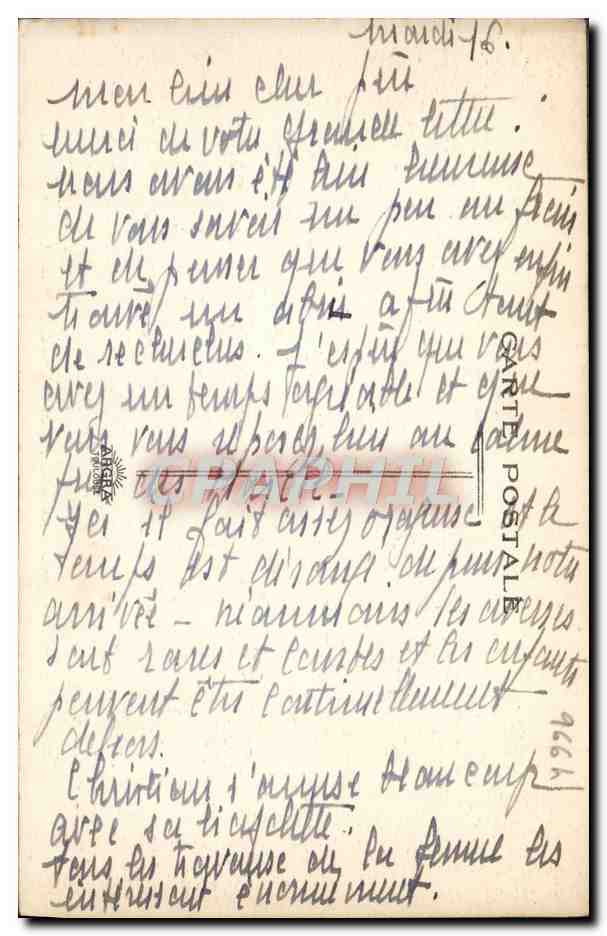 mardi 16.
mon bien cher père
merci de votre grande lettre.
nous avons été bien heureuse
de vous savoir un peu au frais
et de penser que vous avez enfin
trouvé un abri après tant
de recherches. J'espère que vous
avez un temps agréable et que
vous vous reposez bien au calme
Ici il fait assez orageux et le
temps est dérangé depuis notre
arrivée - néanmoins les averses
sont rares et courtes et les enfants
peuvent être continuellement
dehors.
Christian s'amuse beaucoup
avec sa
tous les travaux de la ferme les
intéressent énormément.
CARTE POSTALE
ARGRA
TOULOUSE
CPAPHIL
14996